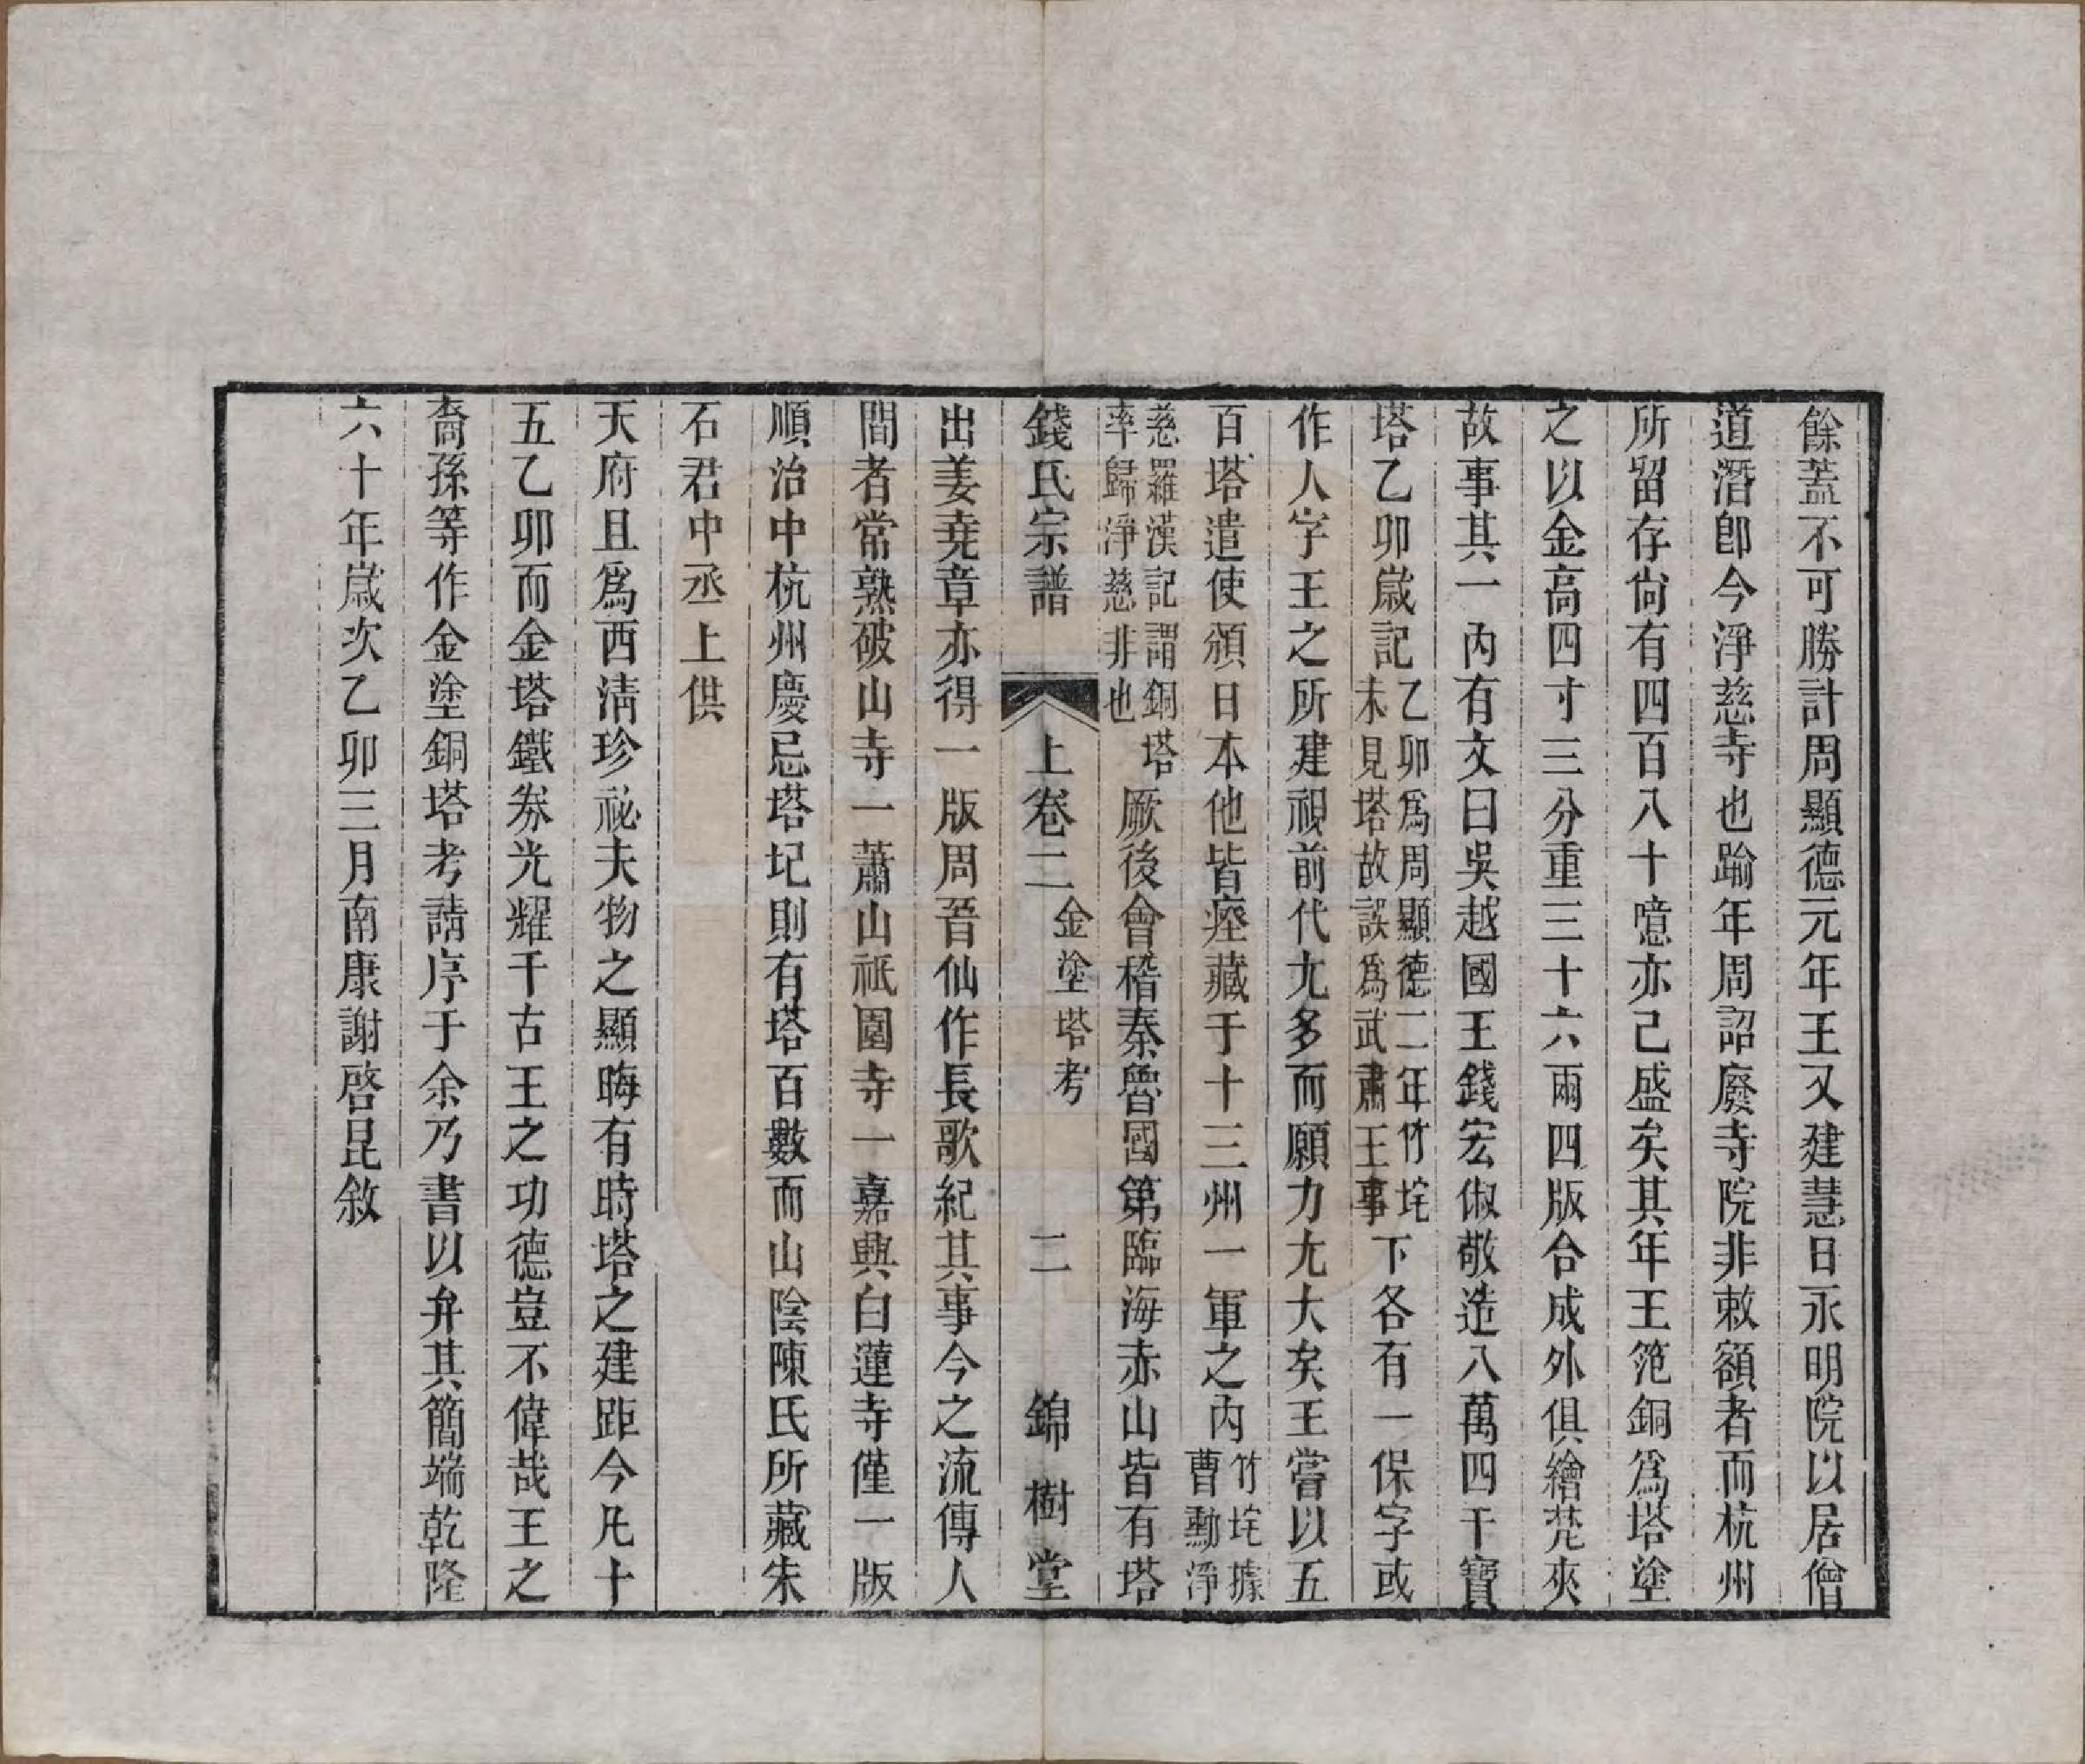 餘蓋不可勝計周顯德元年王又建慧日永明院以居僧
道潛卽今淨慈寺也踰年周詔廢寺院非敕額者而杭州
所留存尙有四百八十噫亦已盛矣其年王笵銅爲塔塗
之以金高四寸三分重三十六兩四版合成外俱繪梵夾
故事其一內有文曰吳越國王錢宏俶敬造八萬四千寶
塔乙卯歲記乙卯爲周顯德二年竹垞未見塔故誤爲武肅王事下各有一保字或
作人字王之所建視前代尢多而願力尢大矣王嘗以五
百塔遣使頒日本他皆瘞藏于十三州一軍之內竹垞據曹勳淨
慈羅漢記謂銅塔率歸淨慈非也厥後會稽秦魯國第臨海赤山皆有塔
錢氏宗譜 上卷二 金塗塔考 二 錦樹堂
出姜堯章亦得一版周晉仙作長歌紀其事今之流傳人
間者常熟破山寺一蕭山祇園寺一嘉興白蓮寺僅一版
順治中杭州慶忌塔圮則有塔百數而山陰陳氏所藏朱
石君中丞上供
天府且爲西淸珍祕夫物之顯晦有時塔之建距今凡十
五乙卯而金塔鐵券光耀千古王之功德豈不偉哉王之
裔孫等作金塗銅塔考請序于余乃書以弁其簡端乾隆
六十年歲次乙卯三月南康謝啓昆敘